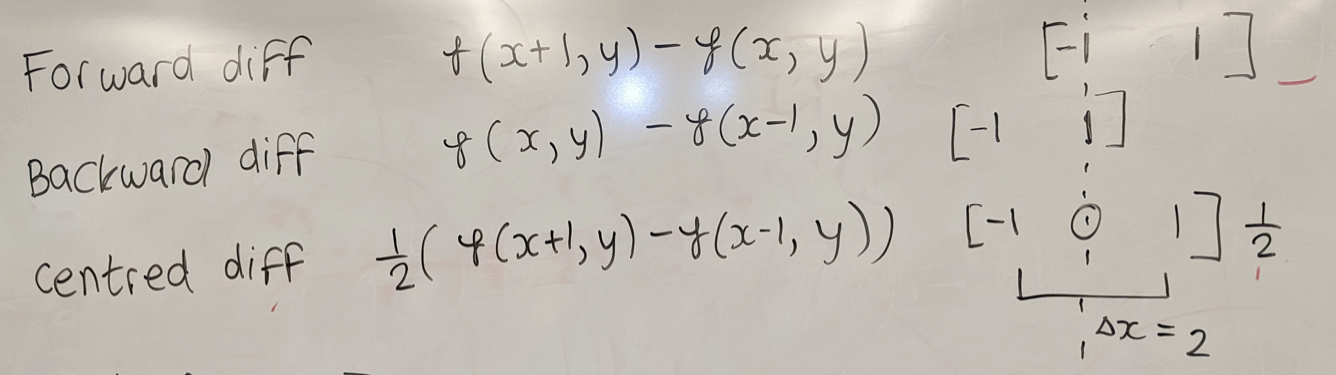 Forward diff f(x+1, y) - f(x, y) [-1 1]
Backward diff f(x, y) - f(x-1, y) [-1 1]
centred diff 1/2 ( f(x+1, y) - f(x-1, y)) [-1 0 1] 1/2
Δx = 2